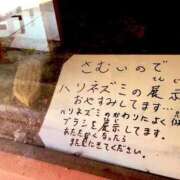 さむいので
ハリネズミの展示
おやすみしてます…
ハリネズミのかわりによく
ブラシを展示してます。
あたたかくなったら
またきてください。